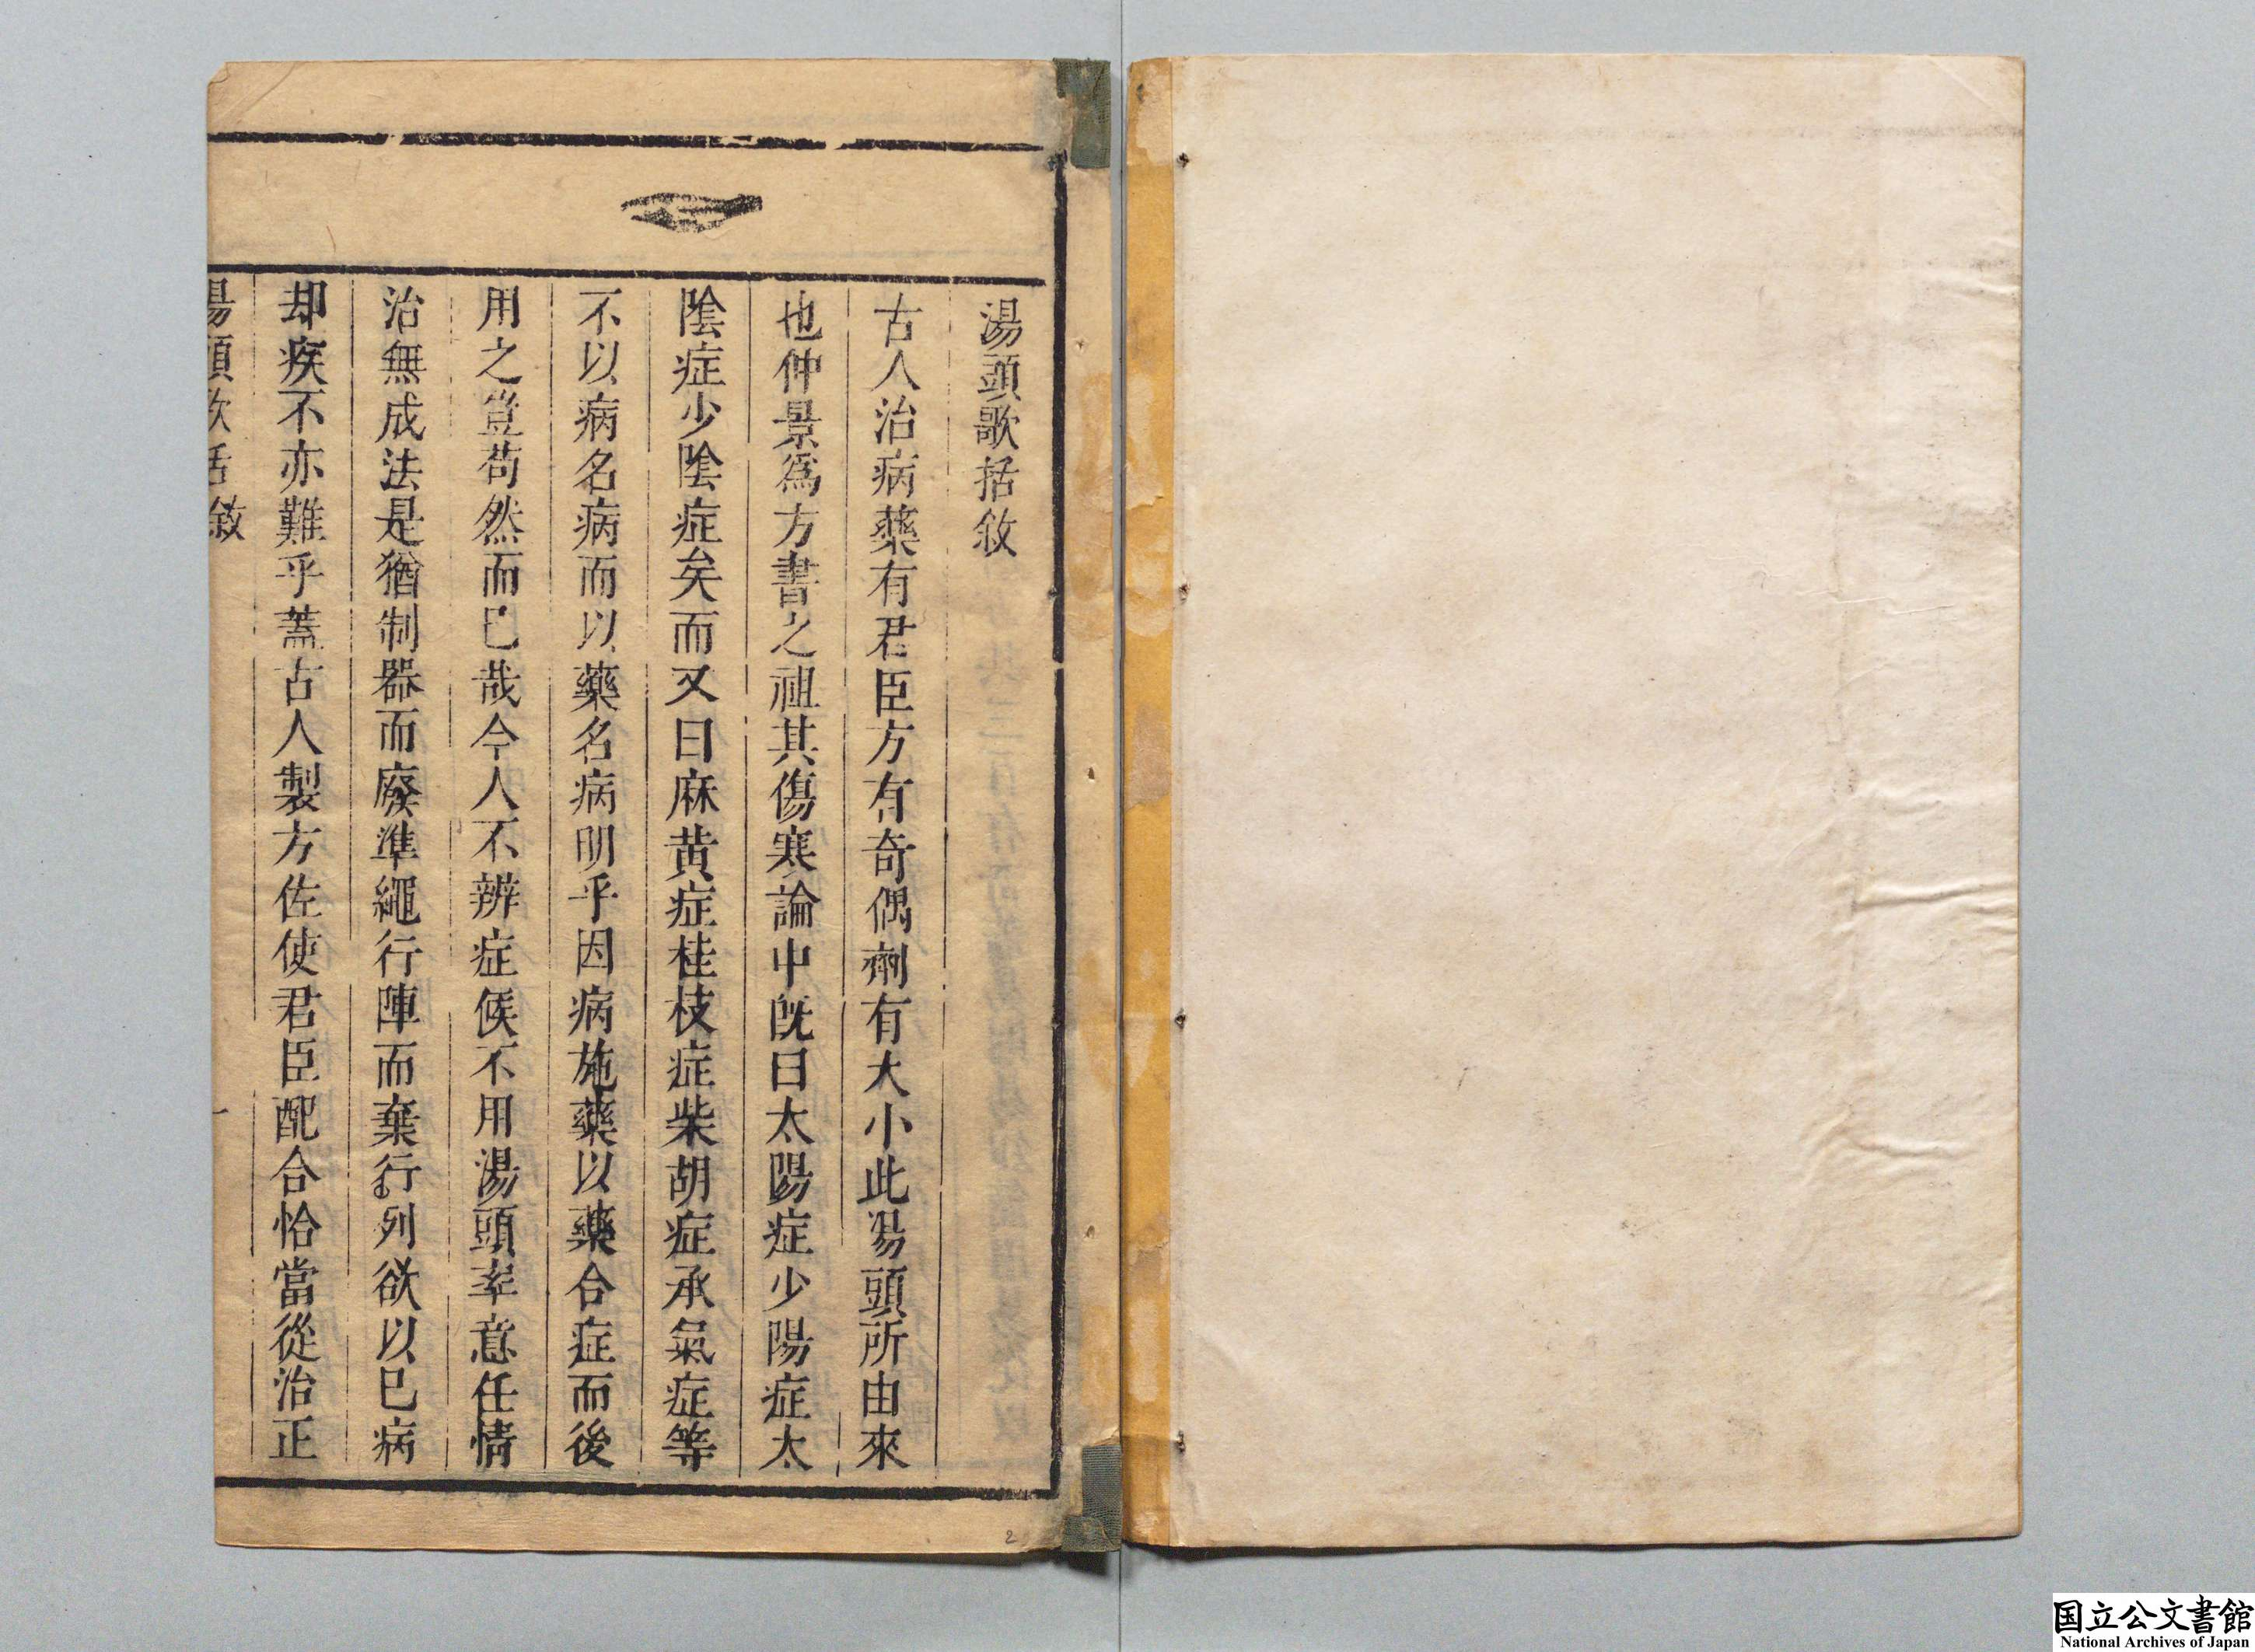 湯頭歌括敘
古人治病藥有君臣方有奇偶劑有大小此湯頭所由來
也仲景爲方書之祖其傷寒論中旣曰太陽症少陽症太
陰症少陰症矣而又曰麻黃症桂枝症柴胡症承氣症等
不以病名病而以藥名病明乎因病施藥以藥合症而後
用之豈苟然而已哉今人不辨症候不用湯頭率意任情
治無成法是猶制器而廢準繩行陣而棄行列欲以已病
却疾不亦難乎蓋古人製方佐使君臣配合恰當從治正
湯頭歌括敘
一
2
国立公文書館
National Archives of Japan